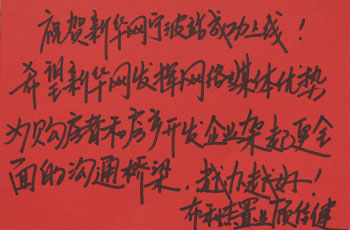 祝贺新华网宁波站成功上线！
希望新华网发挥网络媒体优势
为购房者和房产开发企业架起更全
面的沟通桥梁，越办越好！
置业